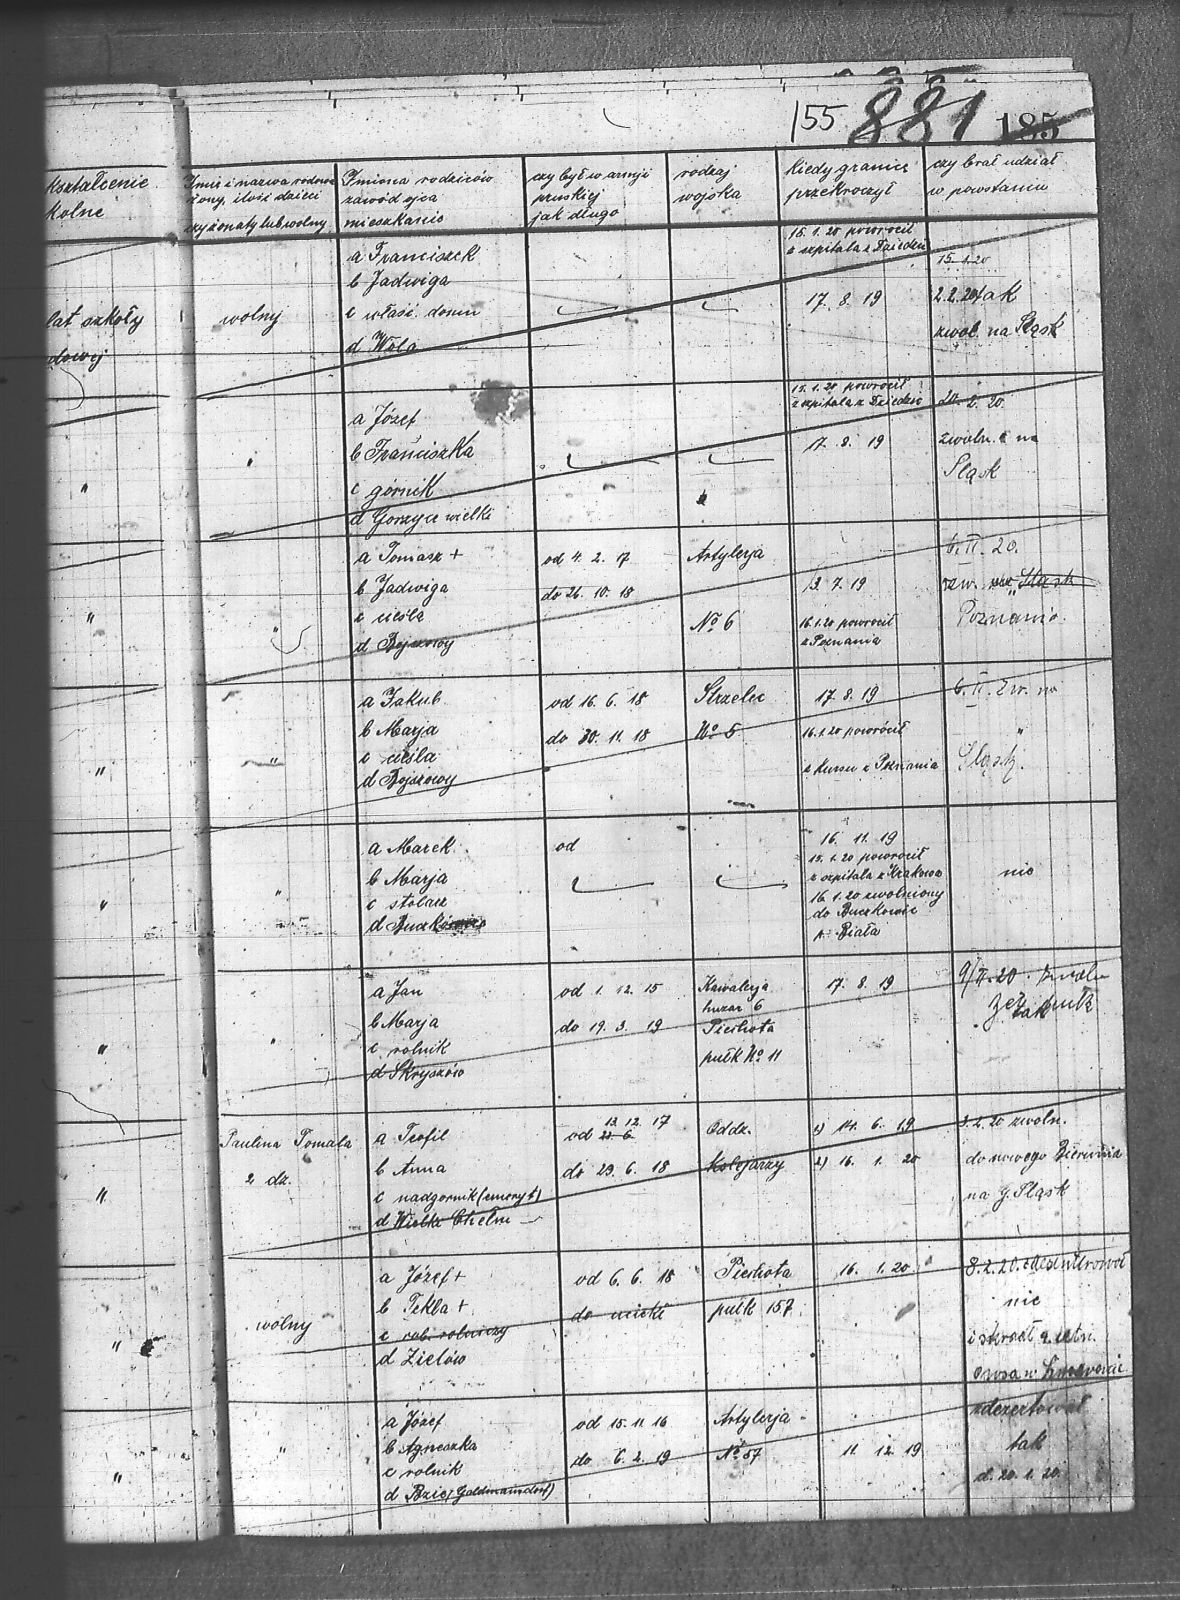 155 881 185
kształcenie
kolne
Imię i nazwa rodowa
żony, ilość dzieci
czy żonaty lub wolny
Imiona rodziców
zawód ojca
mieszkanie
czy był w armji
pruskiej
jak długo
rodzaj
wojska
Kiedy granicę
przekroczył
czy brał udział
w powstaniu
lat szkoły
dowej
wolny
a Franciszek
b Jadwiga
c właść. domu
d Wola
15.1.20 powrócił
z szpitala z Dziedzic
17. 8. 19
15.1.20
2.2.20 tak
zwol. na Śląsk
"
"
a Józef
b Franciszka
c górnik
d Gorzyce wielki
15.1.20 powrócił
z szpitala z Dziedzic
17. 8. 19
2. 20.
zwoln. na
Śląsk
"
"
a Tomasz +
b Jadwiga
c cieśla
d Bojszowy
od 4. 2. 17
do 26. 10. 18
Artylerja
No 6
3. 7. 19
16.1.20 powrócił
z Poznania
6. II. 20.
zw. Śląsk
Poznania.
"
"
a Jakub
b Marja
c cieśla
d Bojszowy
od 16. 6. 18
do 30. 11. 18
Strzelec
No 5
17. 8. 19
16.1.20 powrócił
z kursu z Poznania
6. II. zw. na
"
Śląsk.
"
"
a Marek
b Marja
c stolarz
d Buczkowice
od
16. 11. 19
15. 1. 20 powrócił
z szpitala z Krakowa
16. 1. 20 zwolniony
do Buczkowic
p. Biała
nie
"
"
a Jan
b Marja
c rolnik
d Skrzyszów
od 1. 12. 15
do 19. 3. 19
Kawalerja
huzar 6
Piechota
pułk No 11
17. 8. 19
9/II.20
tak
"
Paulina Tomala
2 dz.
a Teofil
b Anna
c nadgórnik (emeryt)
d Wielki Chełm
13 12 17
od 21. 6.
do 29. 6. 18
Oddz.
Kolejarzy
1) 14. 6. 19
2) 16. 1. 20
3. 2. 20 zwoln.
do nowego Bierunia
na G. Śląsk
"
wolny
a Józef +
b Tekla +
c rob. rolniczy
d Zielów
od 6. 6. 18
do ucieki
Piechota
pułk 157
16. 1. 20
8. 2. 20. zdezenterował
nie
i skradł
"
"
a Józef
b Agneszka
c rolnik
d Bzie (Goldmannsdorf)
od 15. 11. 16
do 6. 2. 19
Artylerja
No 57
11. 12. 19
zdezertował
tak
d. 20. 1. 20.